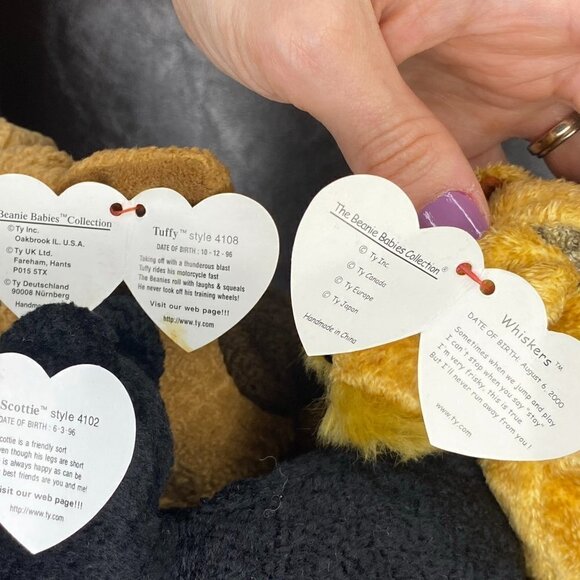 Beanie Babies™Collection
© Ty Inc.
Oakbrook IL. U.S.A.
© Ty UK Ltd.
Fareham, Hants
P015 5TX
© Ty Deutschland
90008 Nürnberg
Handmade
Tuffy™ style 4108
DATE OF BIRTH : 10 - 12 - 96
Taking off with a thunderous blast
Tuffy rides his motorcycle fast
The Beanies roll with laughs & squeals
He never took off his training wheels!
Visit our web page!!!
http://www.ty.com
Scottie™ style 4102
DATE OF BIRTH : 6 - 3 - 96
Scottie is a friendly sort
Even though his legs are short
is always happy as can be
best friends are you and me!
Visit our web page!!!
http://www.ty.com
The Beanie Babies Collection®
© Ty Inc.
© Ty Canada
© Ty Europe
© Ty Japan
Handmade in China
Whiskers™
DATE OF BIRTH: August 6, 2000
Sometimes when we jump and play
I can't stop when you say "stay"
I'm very frisky. This is true.
But I'll never run away from you!
www.ty.com